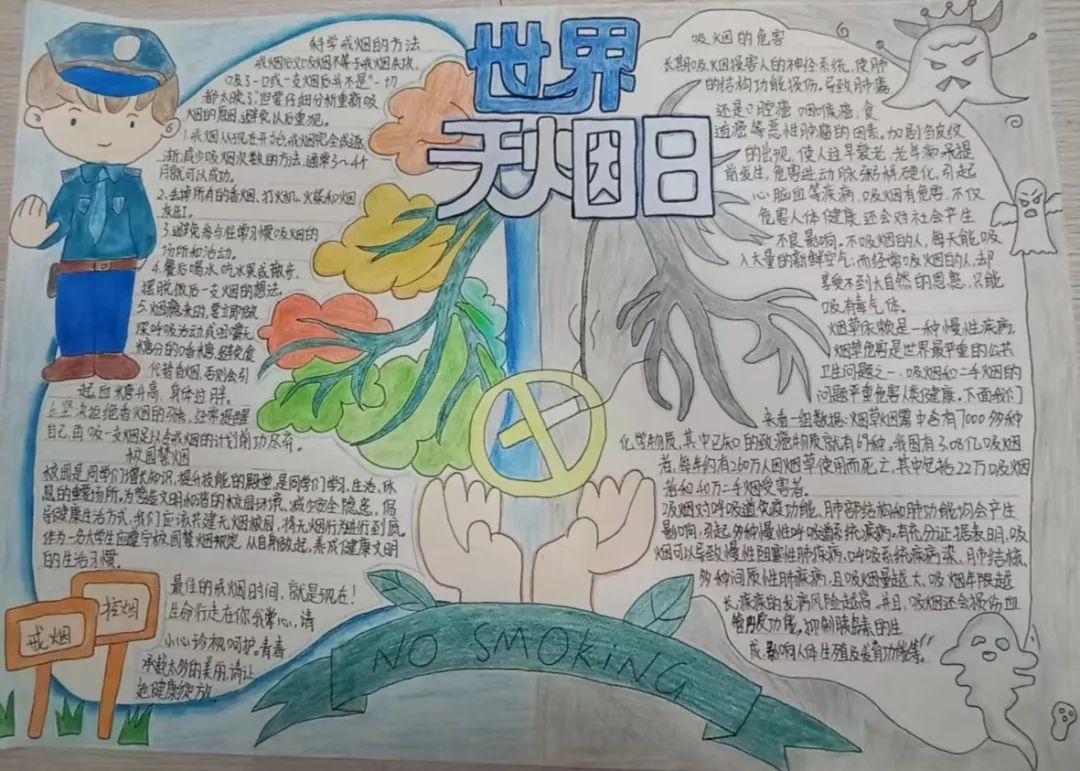 世界
无烟日
科学戒烟的方法
戒烟后又吸烟不等于戒烟失败,
吸了一口或一支烟后并不是“一切
都太晚了”但要仔细分析重新吸
烟的原因,避免以后重现。
1.戒烟从现在开始,戒烟完全或逐
渐减少吸烟次数的方法,通常3~4个
月就可以成功。
2.丢掉所有的香烟、打火机、火柴和烟
灰缸。
3.避免参与往常习惯吸烟的
场所和活动。
4.餐后喝水、吃水果或散步,
摆脱饭后一支烟的想法。
5.烟瘾来时,要立即做
深呼吸活动,或咀嚼无
糖分的口香糖,避免食
代替香烟,否则会引
起血糖升高,身体过胖。
6.坚决拒绝香烟的引诱,经常提醒
自己,再吸一支烟足以令戒烟的计划前功尽弃。
校园禁烟
校园是同学们增长知识,提升技能的殿堂,是同学们学习、生活、休
息的重要场所。为营造文明和谐的校园环境,减少安全隐患,倡
导健康生活方式,我们应该共建无烟校园,将无烟行为进行到底。
作为一名大学生应遵守校园禁烟规定,从自身做起,养成健康文明
的生活习惯。
控烟
戒烟
最佳的戒烟的时间,就是现在!
生命行走在你我掌心,请
小心珍视呵护。青春
承载太多的美丽,请让
她健康绽放
吸烟的危害
长期吸烟损害人的神经系统,使肺
的结构功能损伤,导致肺癌
还是口腔癌、咽喉癌、食
道癌等恶性肿瘤的因素,加剧皱纹
的出现,使人过早衰老,老年病呆提
前发生,危害进动脉粥样硬化,引起
心脑血等疾病,吸烟有危害,不仅
危害人体健康,还会对社会产生
不良影响。不吸烟的人,每天能吸
入大量的新鲜空气;而经常吸烟的人,却
享受不到大自然的恩惠,只能
吸有毒气体。
烟草依赖是一种慢性疾病,
烟草危害是世界最严重的公共
卫生问题之一,吸烟和二手烟的
问题严重危害人类健康。下面我们
来看一组数据:烟草烟雾中含有7000多种
化学物质,其中已知的致癌物质就有69种。我国有3.08亿吸烟
者,每年约有260万人因烟草使用而死亡,其中包括22万吸烟
者和40万二手烟受害者。
吸烟对呼吸道免疫功能、肺部结构和肺功能均会产生
影响,引起多种慢性呼吸道系统疾病。有充分证据表明,吸
烟可以导致慢性阻塞性肺疾病、呼吸系统疾病感染、肺结核、
多种间质性肺疾病,且吸烟量越大、吸烟年限越
长,疾病的发病风险越高。并且,吸烟还会损伤血
管内皮功能,抑制胰岛素的生
成,影响人体生殖及发育功能等。
NO SMOKING